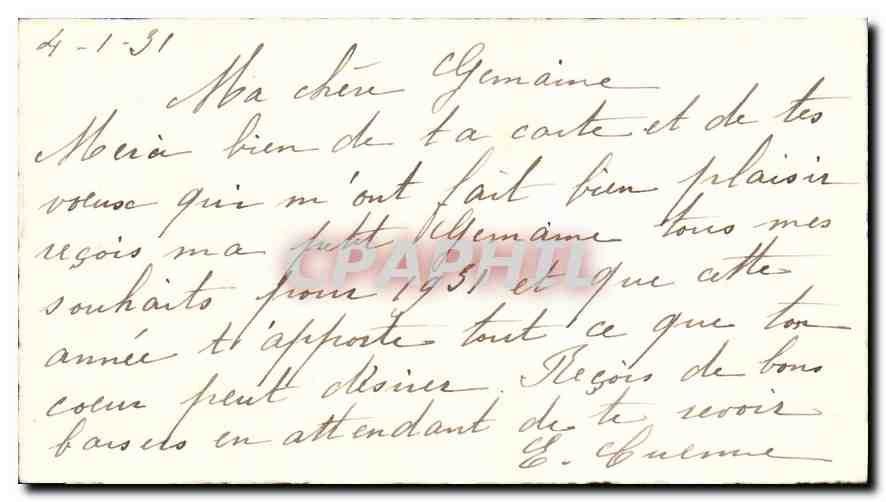 4-1-31
Ma chère Germaine
Merci bien de ta carte et de tes
voeux qui m'ont fait bien plaisir
reçois ma petit Germaine tous mes
souhaits pour 1931 et que cette
année t'apporte tout ce que ton
coeur peut désirer. Reçois de bons
baisers en attendant de te revoir
E.
CPAPHIL